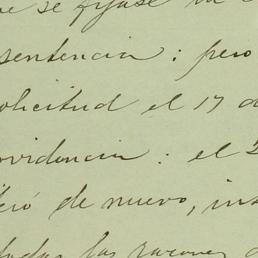 se fijase
sentencia; pero
solicitud el 17 d
ovidencia: el 2
de nuevo, ins
todas las razones